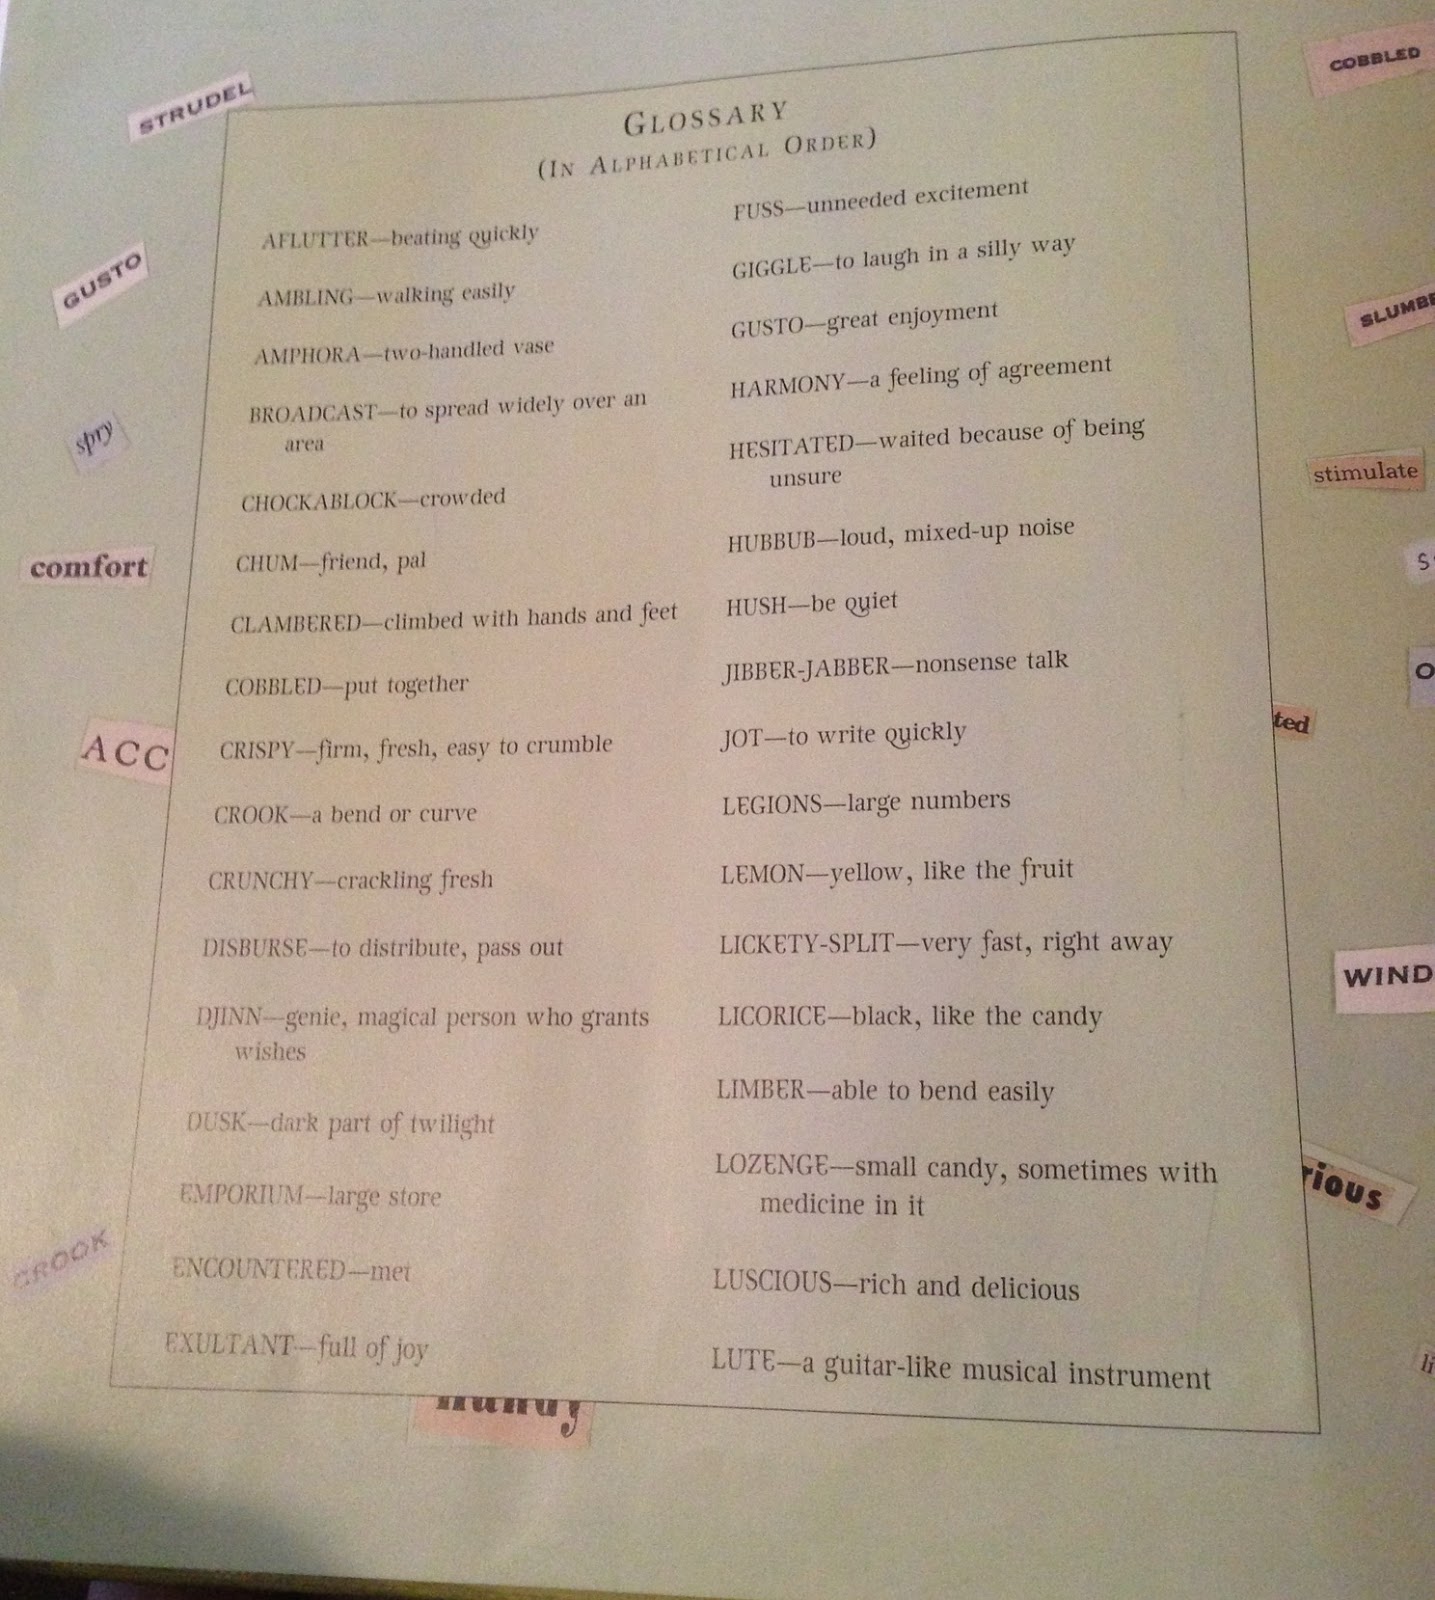 STRUDEL
COBBLED
GLOSSARY
(IN ALPHABETICAL ORDER)
AFLUTTER—beating quickly
AMBLING—walking easily
AMPHORA—two-handled vase
BROADCAST—to spread widely over an
area
CHOCKABLOCK—crowded
CHUM—friend, pal
CLAMBERED—climbed with hands and feet
COBBLED—put together
CRISPY—firm, fresh, easy to crumble
CROOK—a bend or curve
CRUNCHY—crackling fresh
DISBURSE—to distribute, pass out
DJINN—genie, magical person who grants
wishes
DUSK—dark part of twilight
EMPORIUM—large store
ENCOUNTERED—met
EXULTANT—full of joy
FUSS—unneeded excitement
GIGGLE—to laugh in a silly way
GUSTO—great enjoyment
HARMONY—a feeling of agreement
HESITATED—waited because of being
unsure
HUBBUB—loud, mixed-up noise
HUSH—be quiet
JIBBER-JABBER—nonsense talk
JOT—to write quickly
LEGIONS—large numbers
LEMON—yellow, like the fruit
LICKETY-SPLIT—very fast, right away
LICORICE—black, like the candy
LIMBER—able to bend easily
LOZENGE—small candy, sometimes with
medicine in it
LUSCIOUS—rich and delicious
LUTE—a guitar-like musical instrument
GUSTO
spry
comfort
ACC
CROOK
SLUMBE
stimulate
ted
WIND
rious